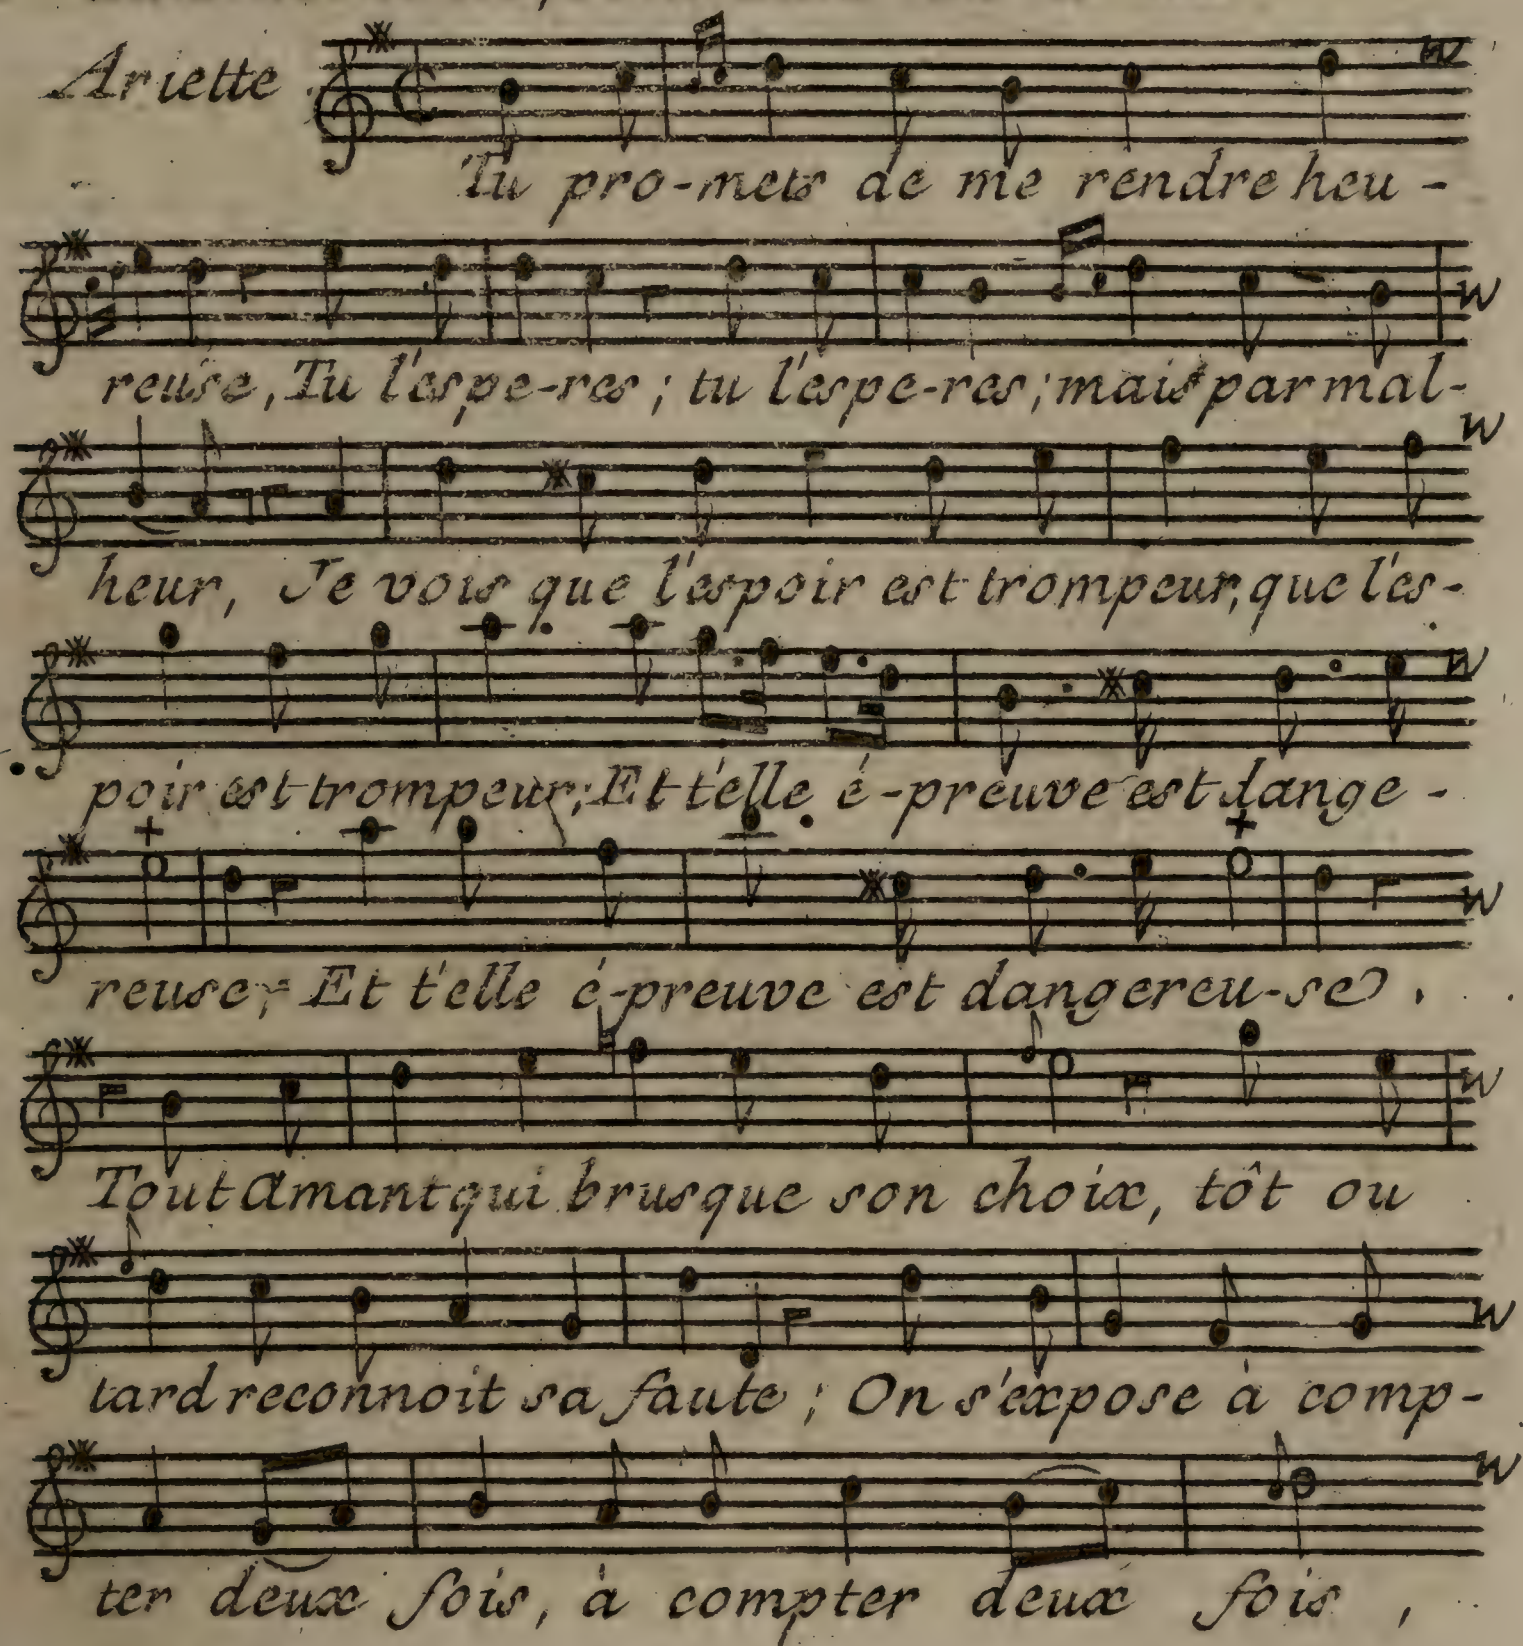 Ariette
Tu pro-mets de me rendre heu-
reuse, Tu l'espe-res; tu l'espe-res; mais par mal-
heur, Je vois que l'espoir est trompeur, que l'es-
poir est trompeur; Et t'elle é-preuve est dange-
reuse; Et t'elle é-preuve est dangereu-se.
Tout Amant qui brusque son choix, tôt ou
tard reconnoit sa faute; On s'expose à comp-
ter deux fois, à compter deux fois,